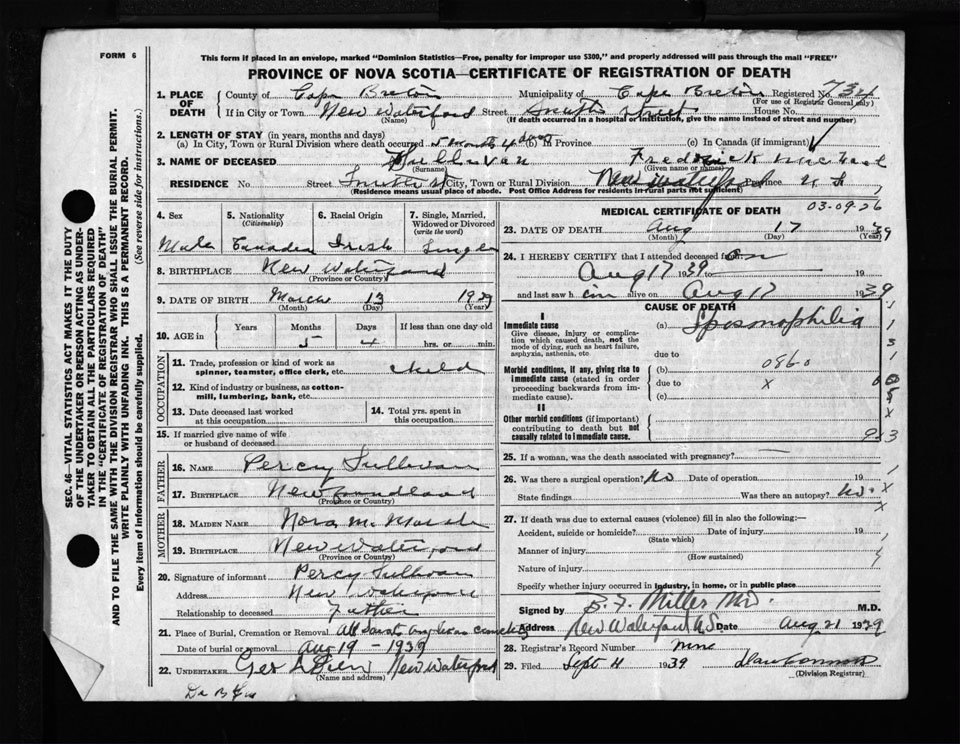 FORM 6
This form if placed in an envelope, marked "Dominion Statistics—Free, penalty for improper use $300," and properly addressed will pass through the mail "FREE"
PROVINCE OF NOVA SCOTIA—CERTIFICATE OF REGISTRATION OF DEATH
SEC. 46—VITAL STATISTICS ACT MAKES IT THE DUTY
OF THE UNDERTAKER OR PERSON ACTING AS UNDER-
TAKER TO OBTAIN ALL THE PARTICULARS REQUIRED
IN THE "CERTIFICATE OF REGISTRATION OF DEATH"
AND TO FILE THE SAME WITH THE DIVISION REGISTRAR WHO SHALL ISSUE THE BURIAL PERMIT.
WRITE PLAINLY WITH UNFADING INK. THIS IS A PERMANENT RECORD.
Every item of information should be carefully supplied. (See reverse side for instructions.)
1. PLACE OF DEATH County of Cape Breton Municipality of Cape Breton Registered No. 734
(For use of Registrar General only)
If in City or Town New Waterford Street Smith Street House No.
(Name) (If death occurred in a hospital or institution, give the name instead of street and number)
2. LENGTH OF STAY (in years, months and days)
(a) In City, Town or Rural Division where death occurred 5 months 4 days (b) In Province (c) In Canada (if immigrant)
3. NAME OF DECEASED Sullivan Fredrick Michael
(Surname) (Given name or names)
RESIDENCE No. Street Smith St City, Town or Rural Division New Waterford Province N S
(Residence means usual place of abode. Post Office Address for residents in rural parts not sufficient)
4. Sex Male
5. Nationality (Citizenship) Canadian
6. Racial Origin Irish
7. Single, Married, Widowed or Divorced (write the word) Single
8. BIRTHPLACE New Waterford
(Province or Country)
9. DATE OF BIRTH March 13 1939
(Month) (Day) (Year)
10. AGE in Years Months 5 Days 4 If less than one day old hrs. or min.
OCCUPATION
11. Trade, profession or kind of work as spinner, teamster, office clerk, etc. child
12. Kind of industry or business, as cotton-mill, lumbering, bank, etc.
13. Date deceased last worked at this occupation
14. Total yrs. spent in this occupation
15. If married give name of wife or husband of deceased
FATHER
16. NAME Percy Sullivan
17. BIRTHPLACE Newfoundland
(Province or Country)
MOTHER
18. MAIDEN NAME Nora M.
19. BIRTHPLACE New Waterford
(Province or Country)
20. Signature of informant Percy Sullivan
Address New Waterford
Relationship to deceased Father
21. Place of Burial, Cremation or Removal
Date of burial or removal Aug 19 – 1939
22. UNDERTAKER Geo New Waterford
(Name and address)
MEDICAL CERTIFICATE OF DEATH 03-09-26
23. DATE OF DEATH Aug 17 1939
(Month) (Day) (Year)
24. I HEREBY CERTIFY that I attended deceased from on
Aug 17 1939 to 19
and last saw him alive on Aug 17 1939
CAUSE OF DEATH
I
Immediate cause
Give disease, injury or complication which caused death, not the mode of dying, such as heart failure, asphyxia, asthenia, etc
(a) Spasmophilia
due to
Morbid conditions, if any, giving rise to immediate cause (stated in order proceeding backwards from immediate cause).
(b) 086.0
due to x
(c)
II
Other morbid conditions (if important) contributing to death but not causally related to immediate cause.
25. If a woman, was the death associated with pregnancy? —
26. Was there a surgical operation? No Date of operation 19
State findings Was there an autopsy? No.
27. If death was due to external causes (violence) fill in also the following:—
Accident, suicide or homicide? Date of injury 19
(State which)
Manner of injury
(How sustained)
Nature of injury
Specify whether injury occurred in industry, in home, or in public place
Signed by B. F. Miller MD. M.D.
Address New Waterford NS Date Aug 21 1939
28. Registrar's Record Number
29. Filed Sept 4 1939
(Division Registrar)